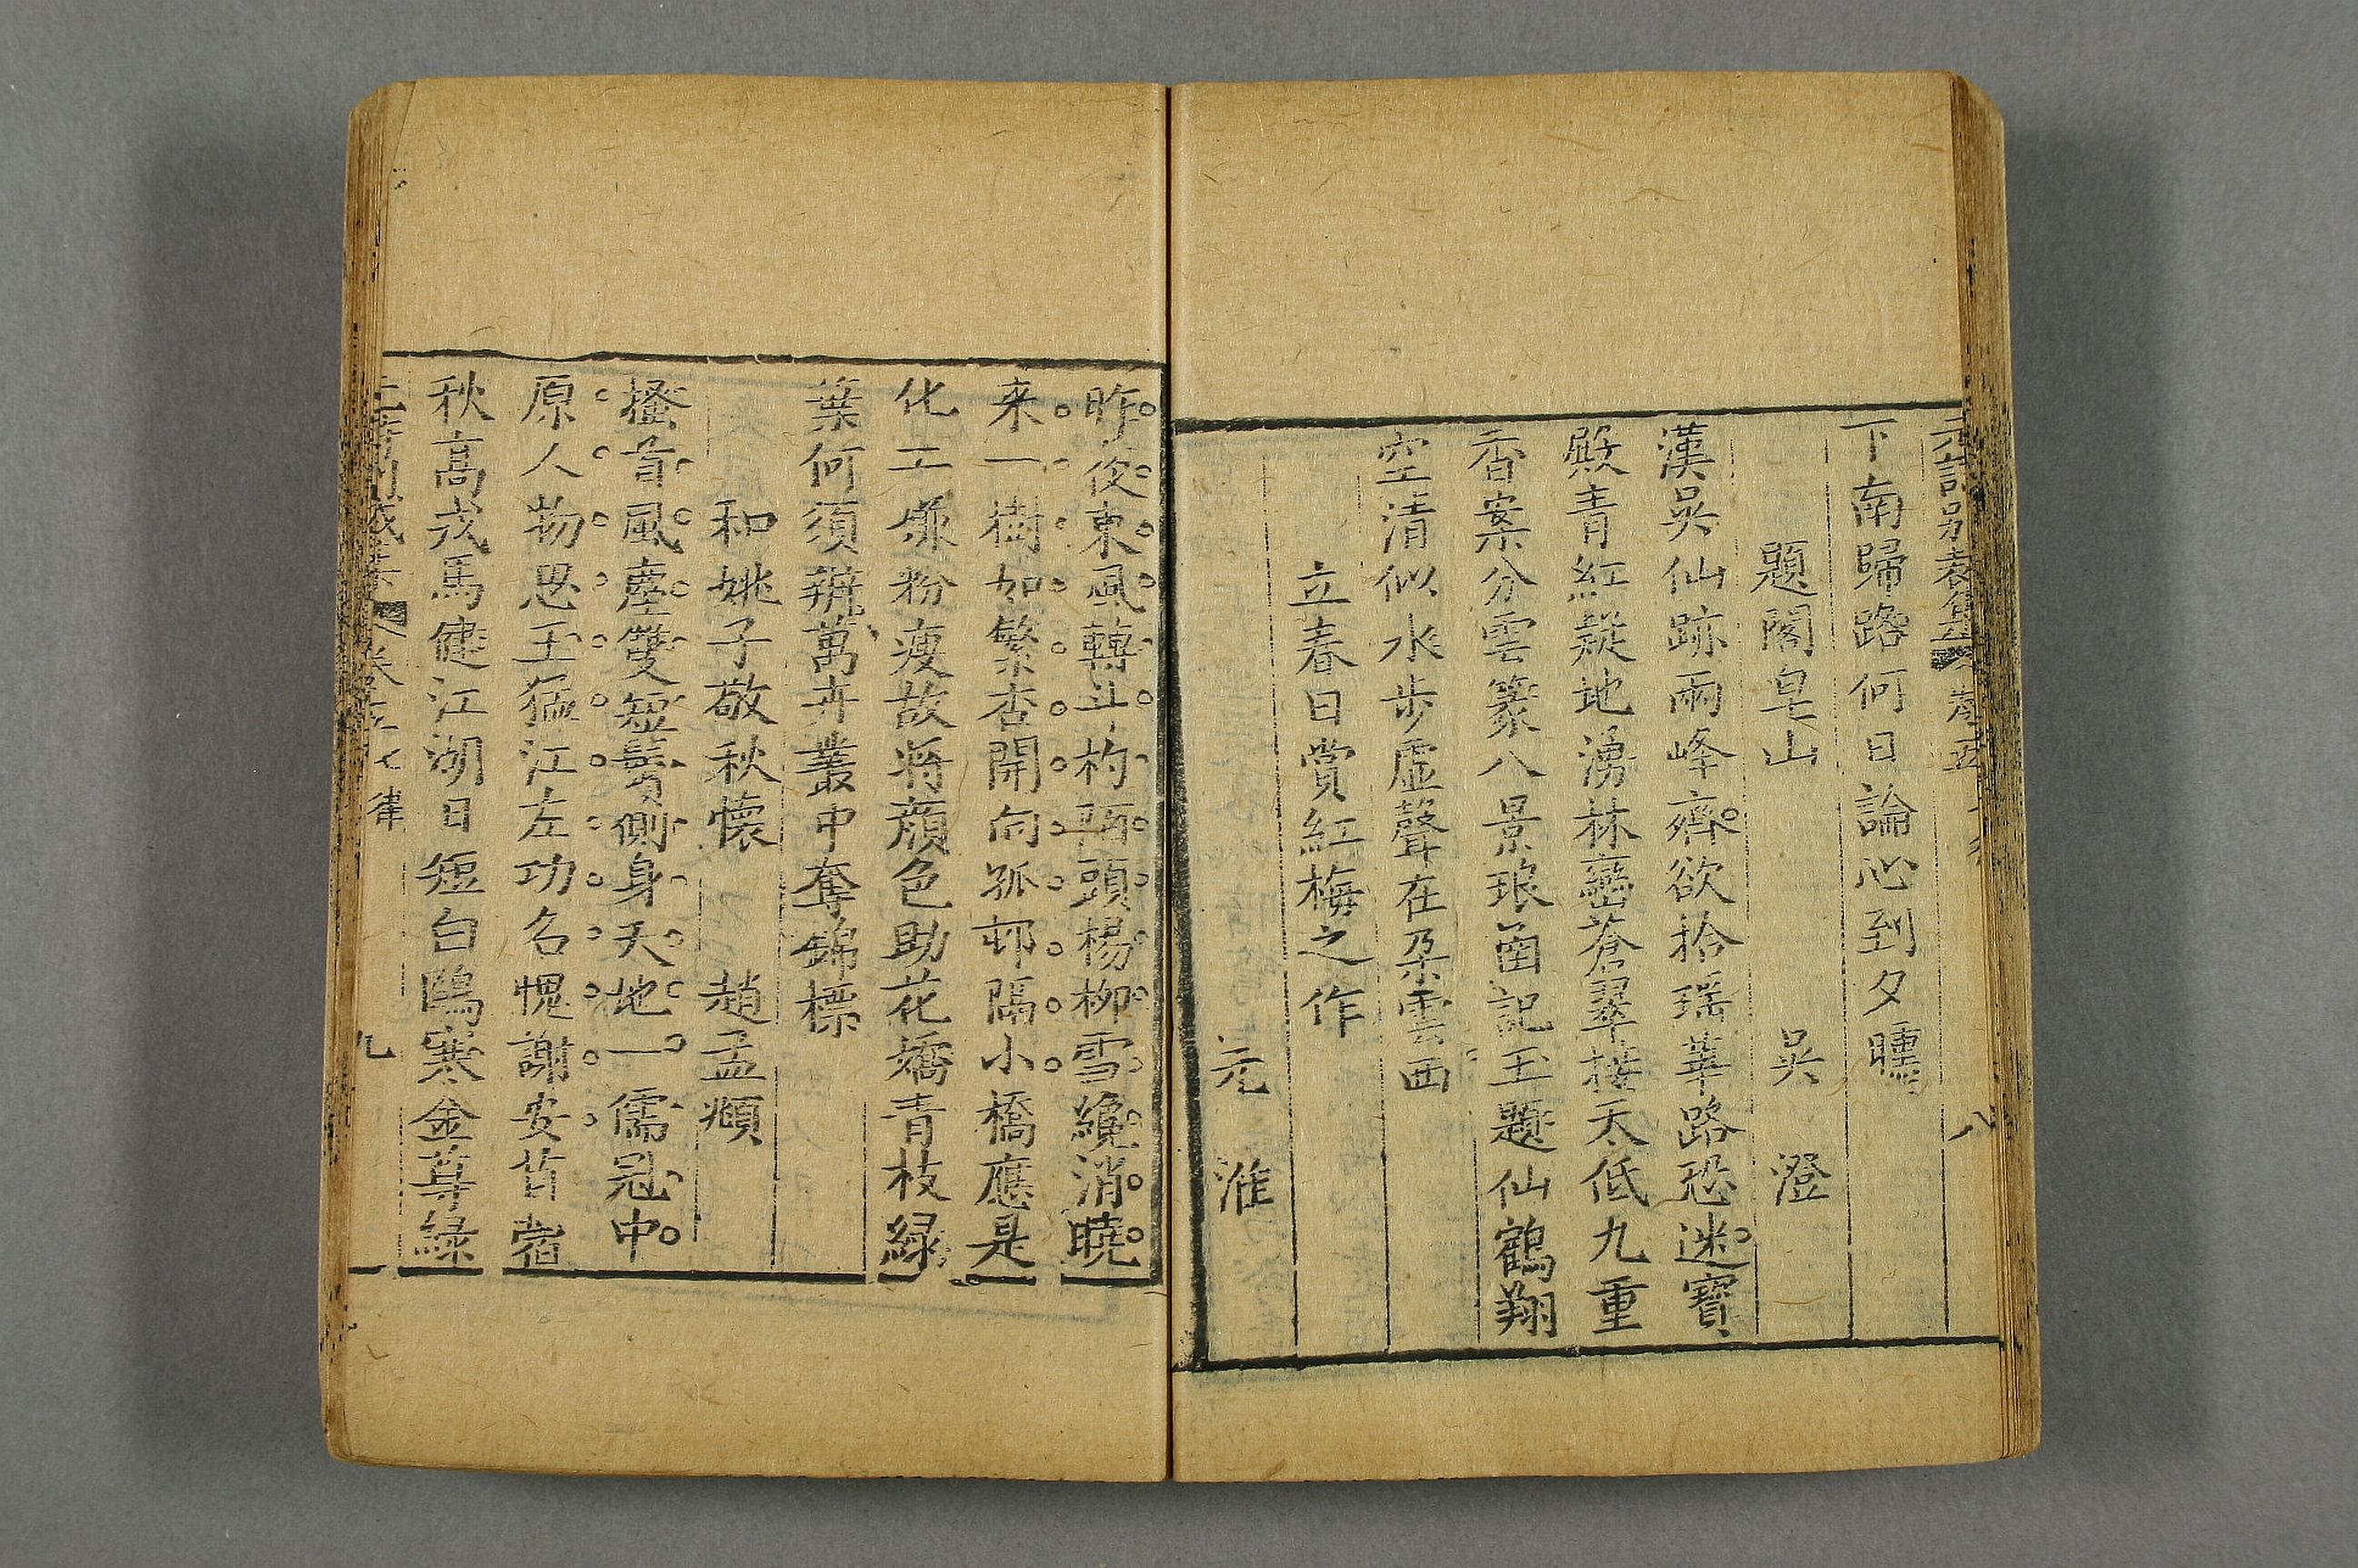 元詩別裁集 卷五 七律 八
下南歸路何日論心到夕曛
題閣皂山 吳 澄
漢吳仙跡兩峰齊欲拾瑤華路恐迷寶
殿青紅疑地湧林巒蒼翠接天低九重
香案分雲篆八景琅函記玉題仙鶴翔
空清似水步虛聲在朵雲西
立春日賞紅梅之作
元 淮
昨夜東風轉斗杓陌頭楊柳雪纔消曉
來一樹如繁杏開向孤邨隔小橋應是
化工嫌粉瘦故將顏色助花嬌青枝綠
葉何須辨萬卉叢中奪錦標
和姚子敬秋懷 趙孟頫
搔首風塵雙短鬢側身天地一儒冠中
原人物思王猛江左功名愧謝安苜蓿
秋高戎馬健江湖日短白鷗寒金尊綠
卷五 七律 九